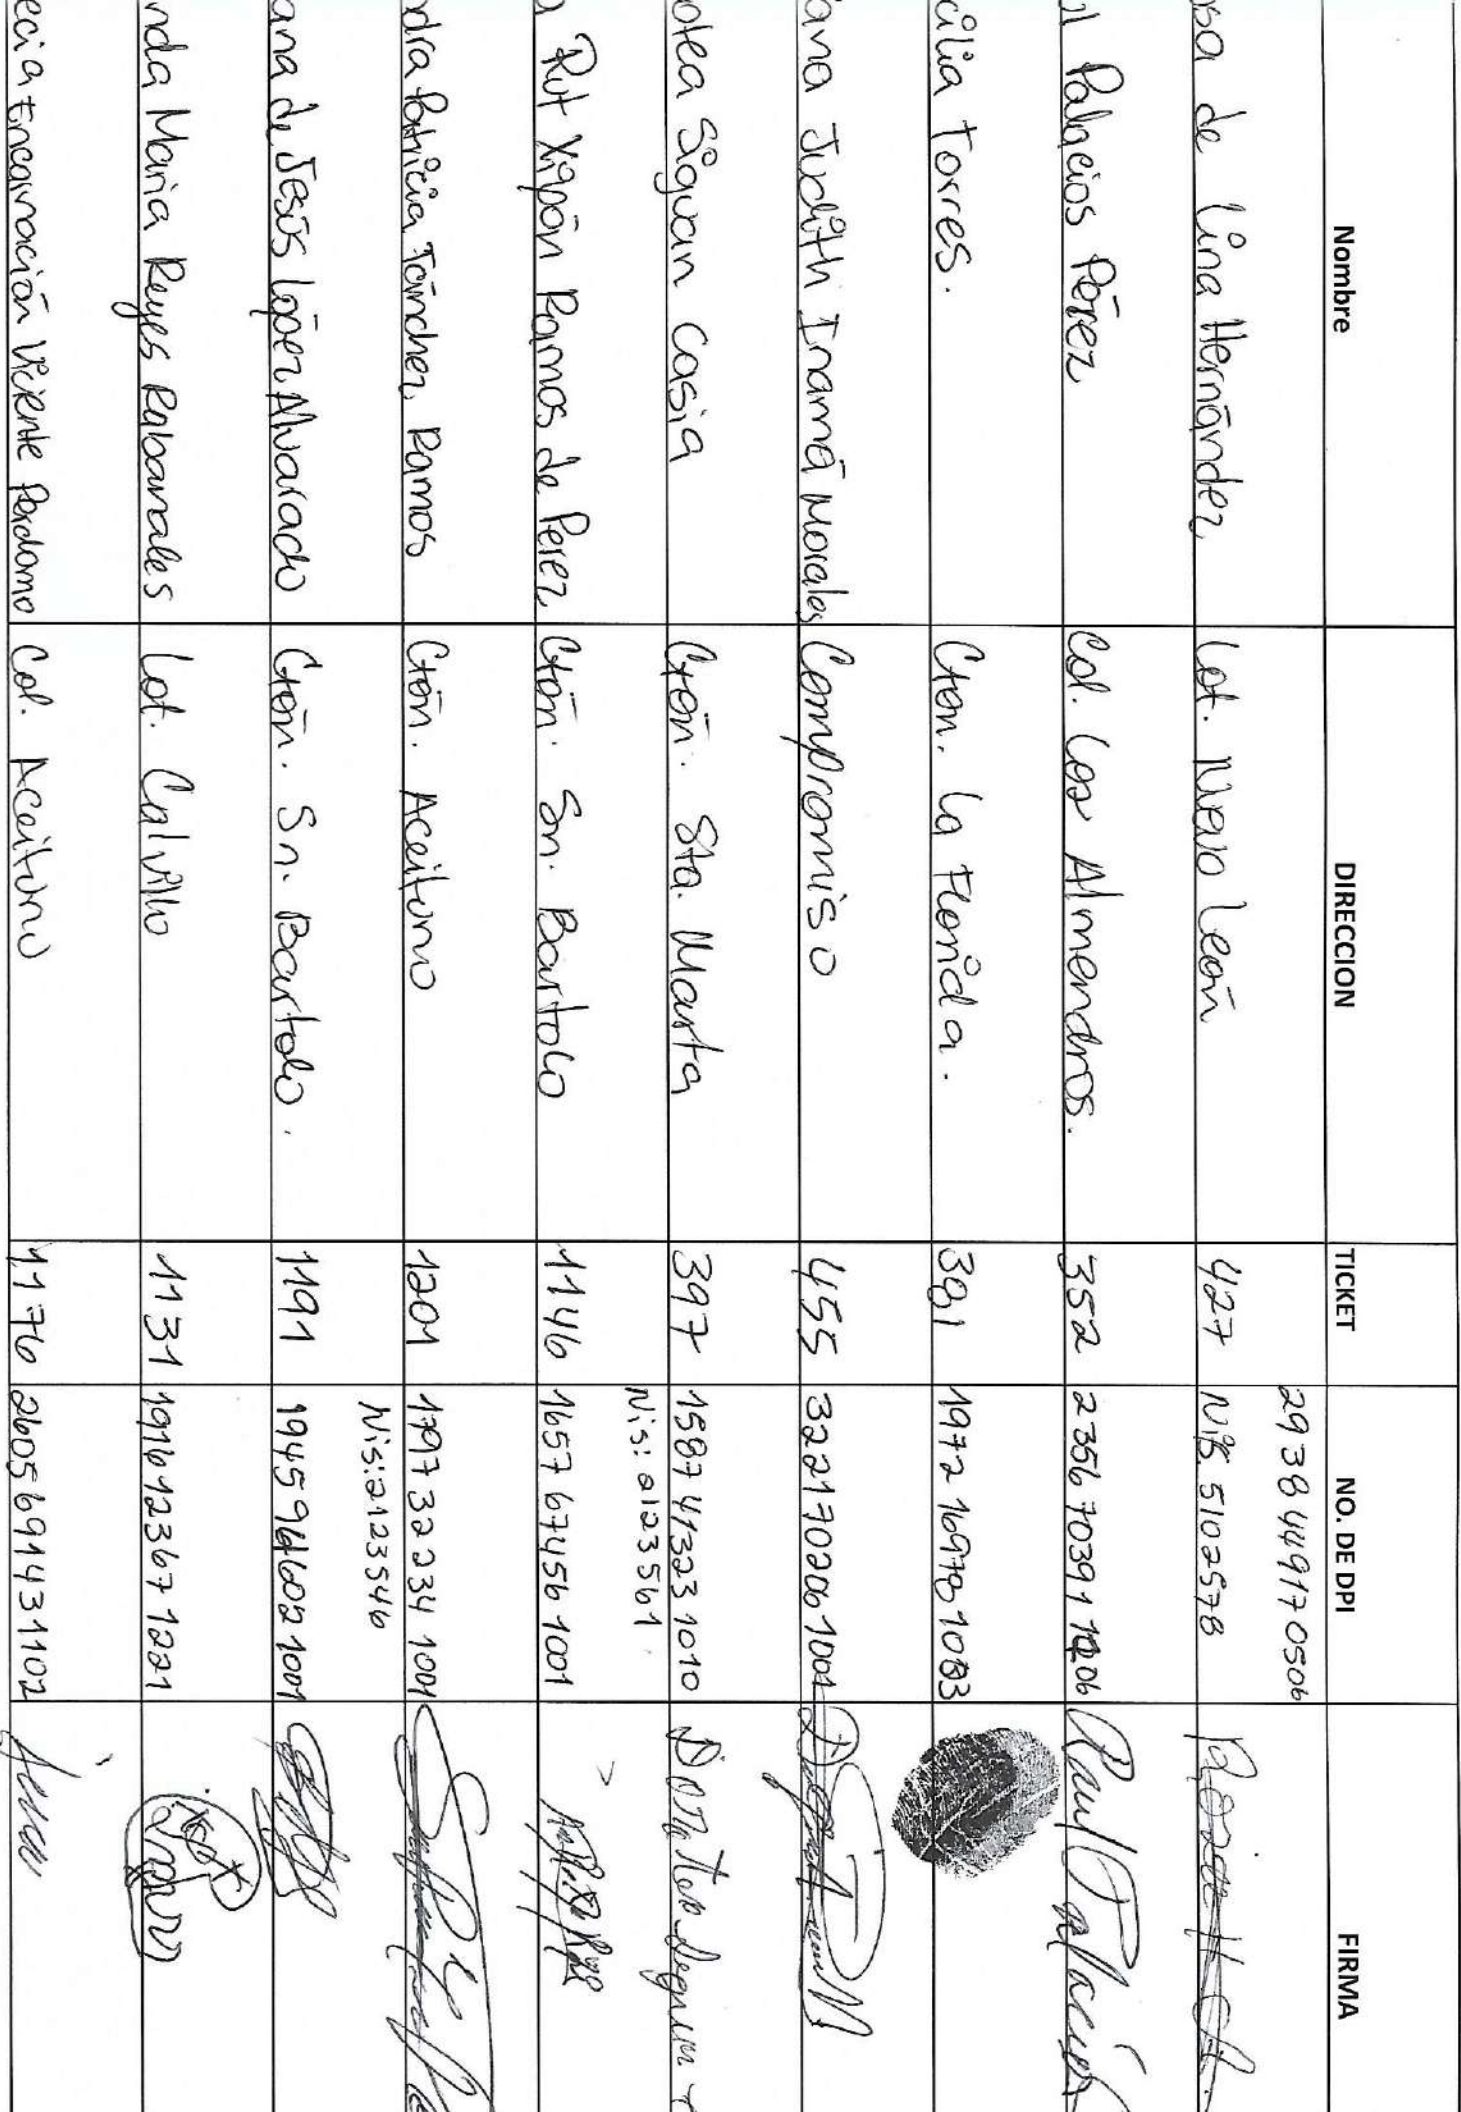 Nombre DIRECCION TICKET NO. DE DPI FIRMA
2938 44917 0506
osa de Lina Hernández Lot. Nuevo León 427 Nis. 5102578
ul Palacios Pérez Col. Los Almendros. 352 2356 70391 1206 Raul Palacios
cilia Torres. Cton. La Florida. 381 1972 16978
ana Judith Inamá Morales Compromiso 455 3221 70206 1001
otea Siguan Casia Ctón. Sta. Marta 397 1587 41323 1010
Nis: 2123561
a Rut Xipón Ramos de Perez Ctón. Sn. Bartolo 1146 1657 67456 1001
dra Patricia Tánchez Ramos Ctón. Aceituno 1201 1797 32234 1001
Nis: 2123546
ana de Jesús López Alvarado Ctón. Sn. Bartolo. 1191 1945 1001
nda Maria Reyes Rabanales Lot. Calvillo 1131 1916 12367 1221
ecia Encarnación Vicente Perdomo Col. Aceituno 1176 2605 69143 1102